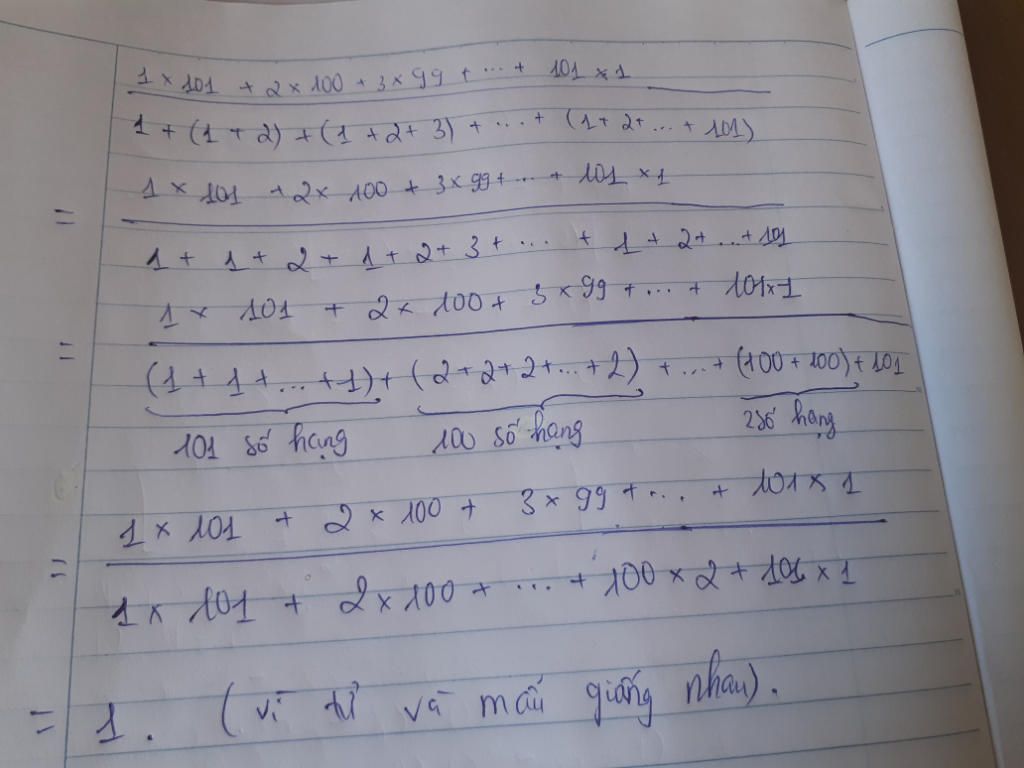 1 × 101 + 2 × 100 + 3 × 99 + ... + 101 × 1
1 + (1 + 2) + (1 + 2 + 3) + ... + (1 + 2 + ... + 101)
1 × 101 + 2 × 100 + 3 × 99 + ... + 101 × 1
=
1 + 1 + 2 + 1 + 2 + 3 + ... + 1 + 2 + ... + 101
1 × 101 + 2 × 100 + 3 × 99 + ... + 101 × 1
=
(1 + 1 + ... + 1) + (2 + 2 + 2 + ... + 2) + ... + (100 + 100) + 101
101 số hạng 100 số hạng 2 số hạng
1 × 101 + 2 × 100 + 3 × 99 + ... + 101 × 1
=
1 × 101 + 2 × 100 + ... + 100 × 2 + 101 × 1
= 1. (vì tử và mẫu giống nhau).